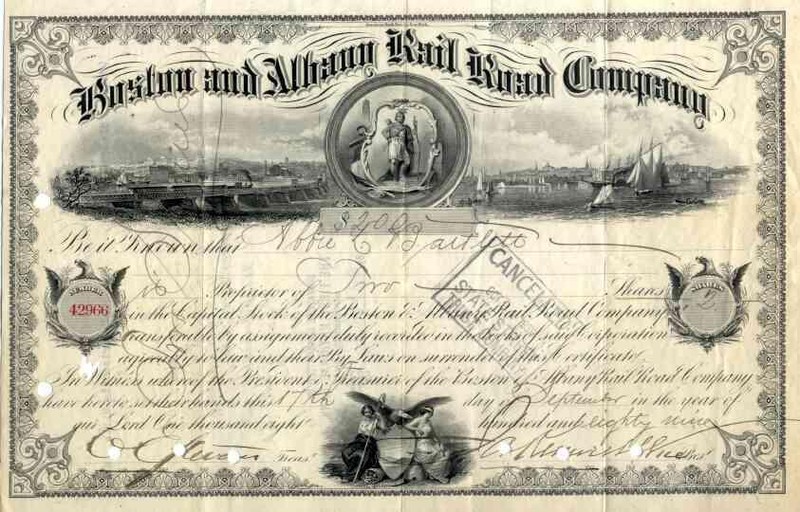 Boston and Albany Rail Road Company
$200
Be it Known that Abbie C Bartlett
NUMBER
42966
SHARES
2
is Proprietor of Two Shares
CANCELLED
in the Capital Stock of the Boston & Albany Rail Road Company
transferable by assignment duly recorded in the books of said Corporation
agreeably to law and their By Laws on surrender of this Certificate.
In Witness whereof the President & Treasurer of the Boston & Albany Rail Road Company,
have hereto set their hands this 17th day of September in the year of
our Lord One thousand eight hundred and eighty nine
Treasr
Prest